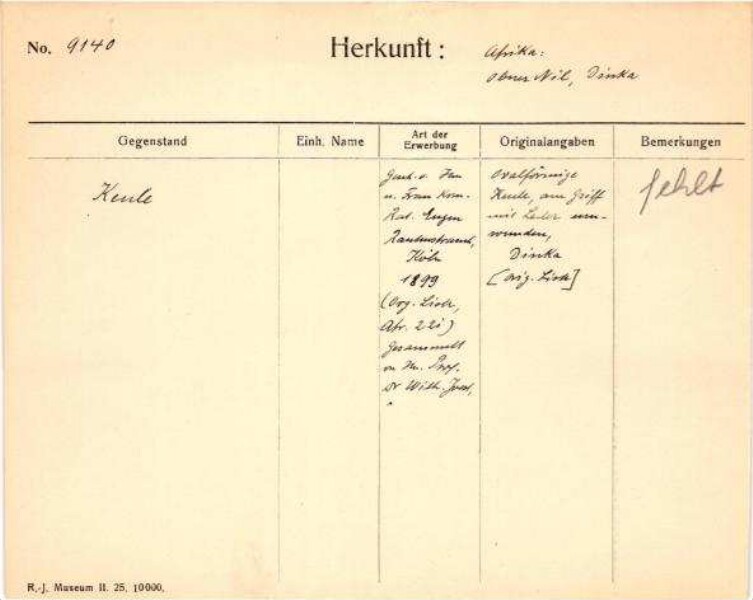 No. 9140
Herkunft:
Afrika:
Oberer Nil, Dinka
Gegenstand
Einh. Name
Art der Erwerbung
Originalangaben
Bemerkungen
Keule
Gesch. v. Herrn
u. Frau Kom.
Rat. Eugen
Rautenstrauch,
Köln
1899
(Org. Liste,
Afr. 22i)
Gesammelt
von Hn. Prof.
Dr Wilh. Joest,
Ovalförmige
Keule, am Griff
mit Leder um-
wunden,
Dinka
[Orig. Liste]
fehlt
R.-J. Museum II. 25. 10000.